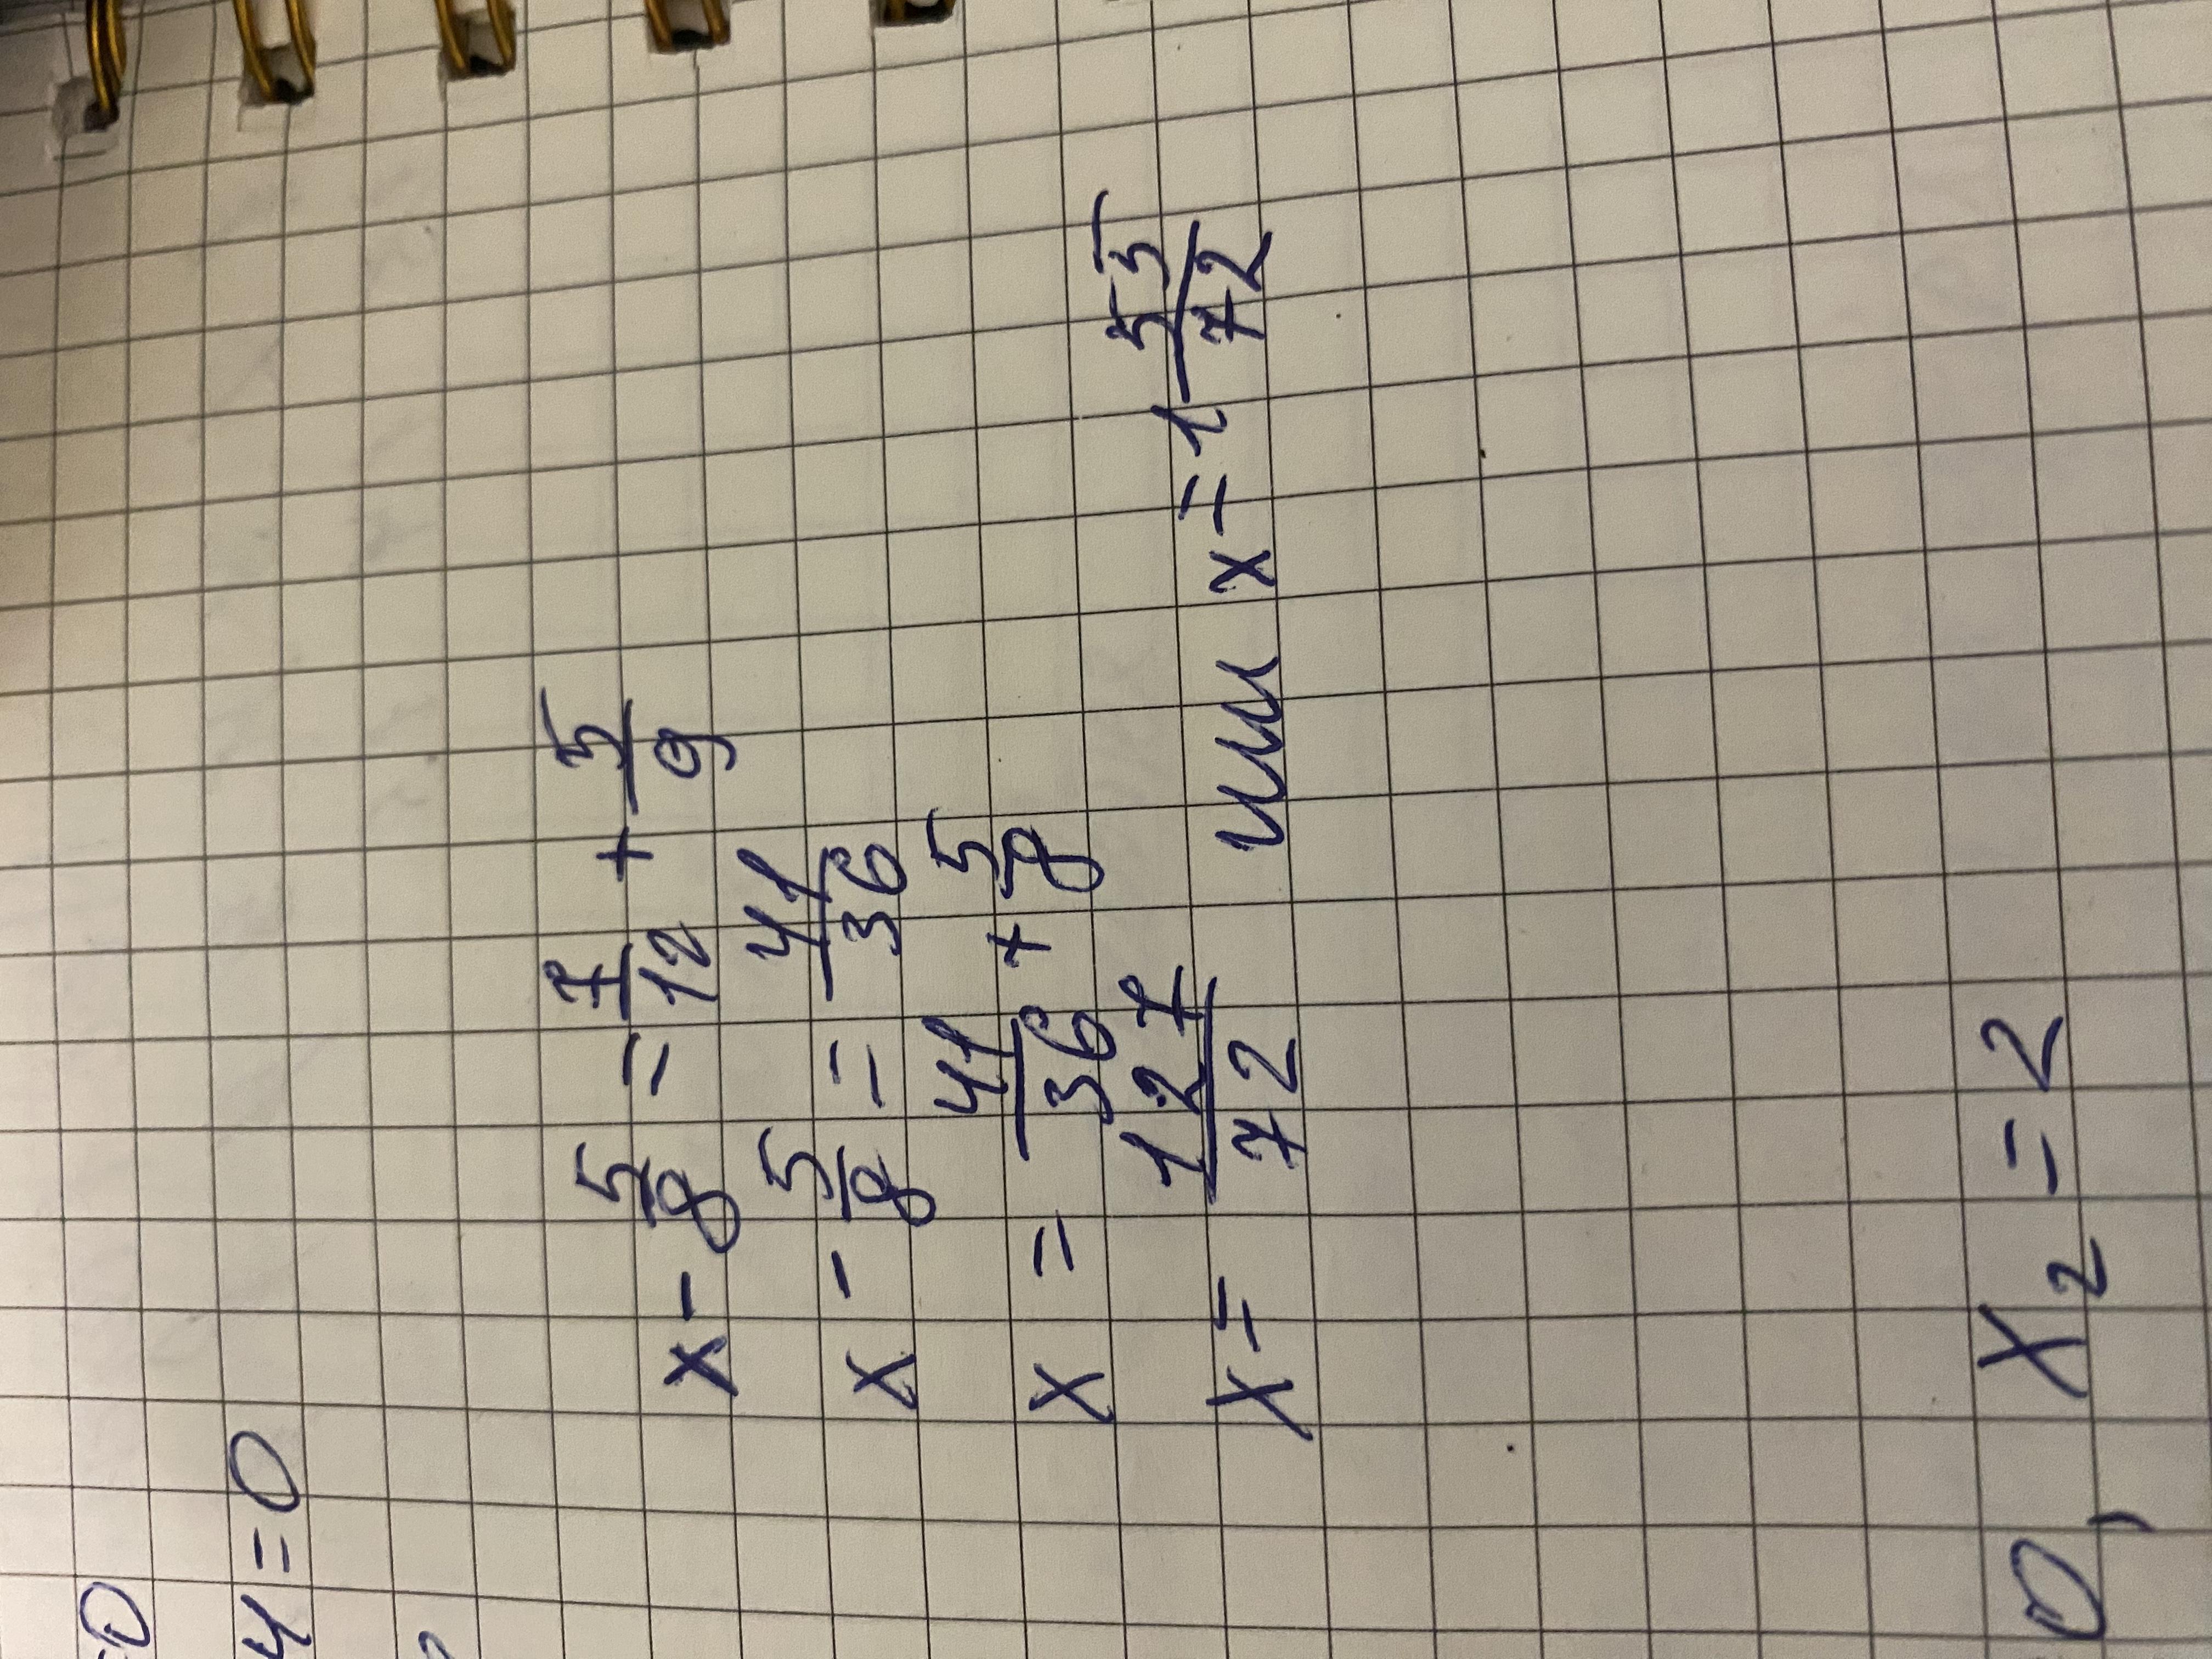 =0
4=0
x - 5/8 = 7/12 + 5/9
x - 5/8 = 41/36
x = 41/36 + 5/8
x = 127/72 или x = 1 55/72
0, x₂ = 2